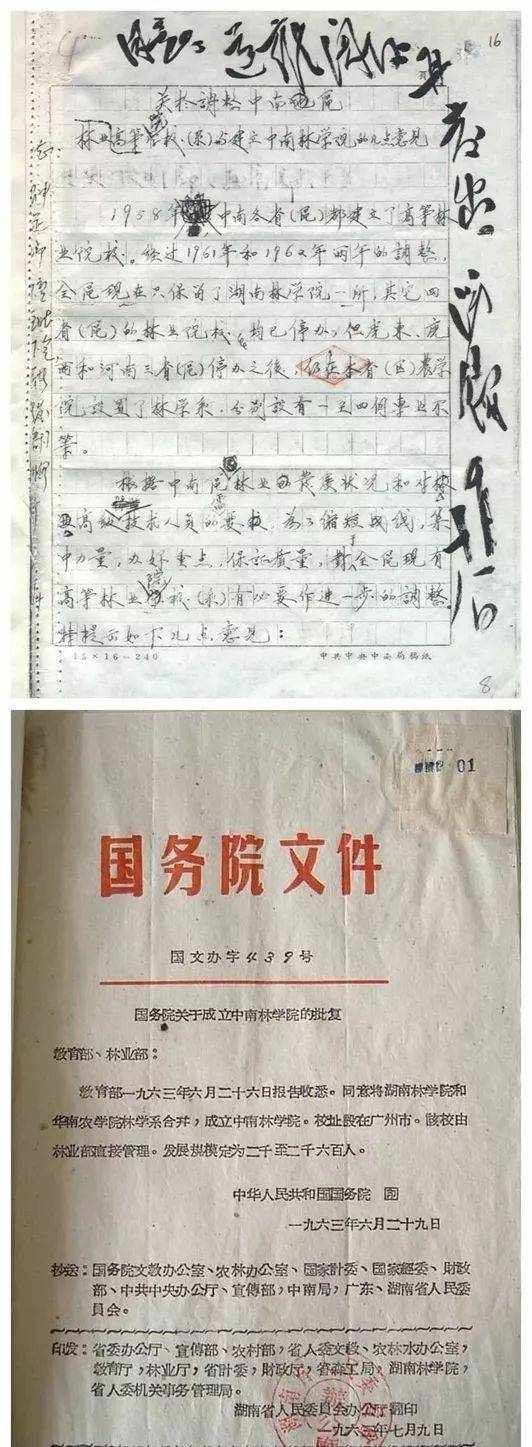 16
关于調整中南地區
林业高等院校(系)与建立中南林学院的几点意見
1958年中南各省(区)都建立了高等林
业院校。经过1961年和1962年两年的調整,
全区現在只保留了湖南林学院一所,其它四
省(区)的林业院校,均已停办,但广东、广
西和河南三省(区)停办之後,仍在本省(区)農学
院設置了林学系,分別設有一至四個專业不
等。
根据中南区林业的发展状况和
高級技术人員的要求,为了縮短战线,集
中力量,办好重点,保証质量,对全区現有
高等林业院校(系)有必要作进一步的調整
特提出如下几点意見:
15×16=240
中共中央中南局稿紙
8
01
国务院文件
国文办字439号
国务院关于成立中南林学院的批复
教育部、林业部:
教育部一九六三年六月二十六日报告收悉。同意将湖南林学院和
华南农学院林学系合并,成立中南林学院。校址設在广州市。該校由
林业部直接管理。发展規模定为二千至二千六百人。
中华人民共和国国务院 印
一九六三年六月二十九日
抄送:国务院文教办公室、农林办公室、国家計委、国家經委、財政
部、中共中央办公厅、宣傳部,中南局,广东、湖南省人民委
員会。
印发:省委办公厅、宣傳部、农村部,省人委文教、农林水办公室,
教育厅,林业厅,省計委,財政厅,省森工局,湖南林学院,
省人委机关事务管理局。
湖南省人民委員会办公厅翻印
一九六三年七月九日